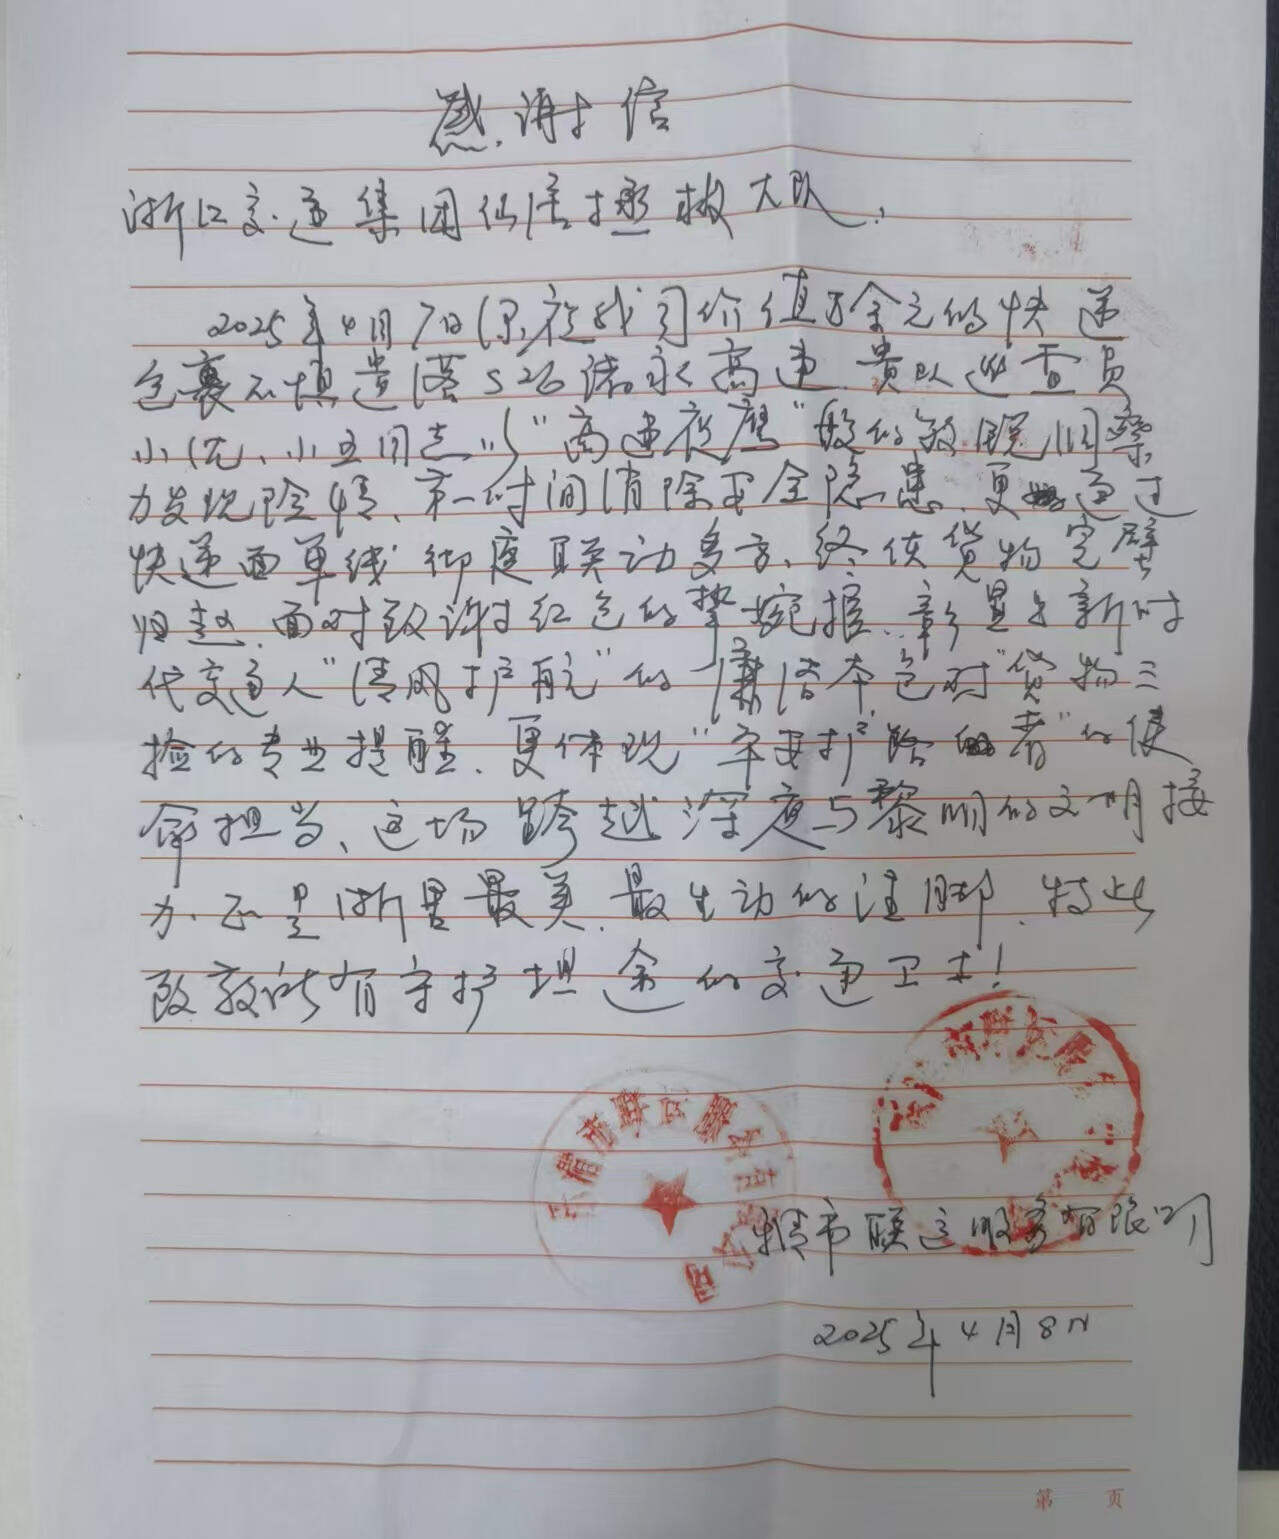 感谢信
浙江交通集团仙居拯救大队:
2025年4月7日深夜我司价值万余元的快递
包裹不慎遗落S26诸永高速.贵队巡查员
小沈、小王同志以"高速夜鹰"般的敏锐洞察
力发现险情、第一时间消除安全隐患.更通过
快递面单线 彻夜联动多方、终使货物完璧
归赵.面对致谢红包的挚婉拒.彰显出新时
代交通人"清风护航"的廉洁本色对"货物三
捡的专业提醒.更体现"平安护路者"的使
命担当、这场跨越深夜与黎明的文明接
力.正是浙里最美.最生动的注脚.特此
致敬所有守护坦途的交通卫士!
市联运服务有限公司
2025年4月8日
第 页